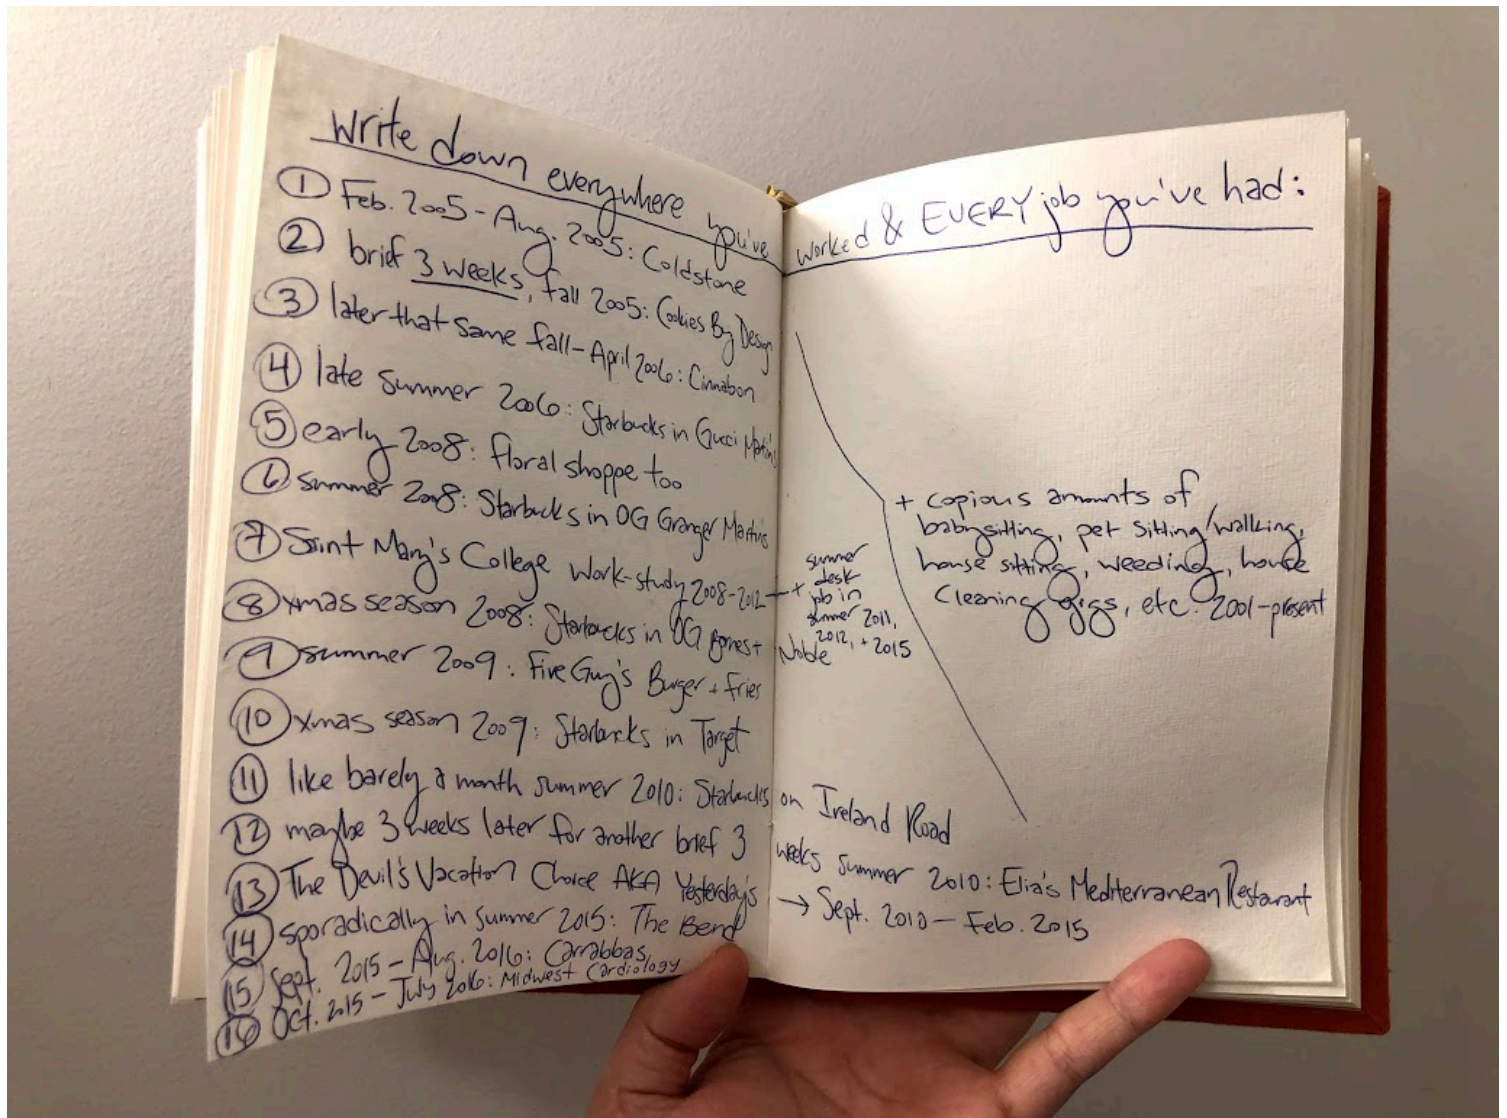 Write down everywhere you've worked & EVERY job you've had:
① Feb. 2005 - Aug. 2005: Coldstone
② brief 3 weeks, fall 2005: Cookies By Design
③ later that same fall - April 2006: Cinnabon
④ late summer 2006: Starbucks in Gucci Martin's
⑤ early 2008: floral shoppe too
⑥ summer 2008: Starbucks in OG Granger Martins
⑦ Saint Mary's College work-study 2008-2012 → + summer
desk
job in
summer 2011,
2012, + 2015
⑧ xmas season 2008: Starbucks in OG Barnes + Noble
⑨ summer 2009: Five Guy's Burger + Fries
⑩ xmas season 2009: Starbucks in Target
⑪ like barely a month summer 2010: Starbucks on Ireland Road
⑫ maybe 3 weeks later for another brief 3 weeks summer 2010: Elia's Mediterranean Restaurant
⑬ The Devil's Vacation Choice AKA Yesterday's → Sept. 2010 - Feb. 2015
⑭ sporadically in summer 2015: The Bend
⑮ Sept. 2015 - Aug. 2016: Carrabbas
⑯ Oct. 2015 - July 2016: Midwest Cardiology
+ copious amounts of
babysitting, pet sitting/walking,
house sitting, weeding, house
cleaning gigs, etc. 2001-present